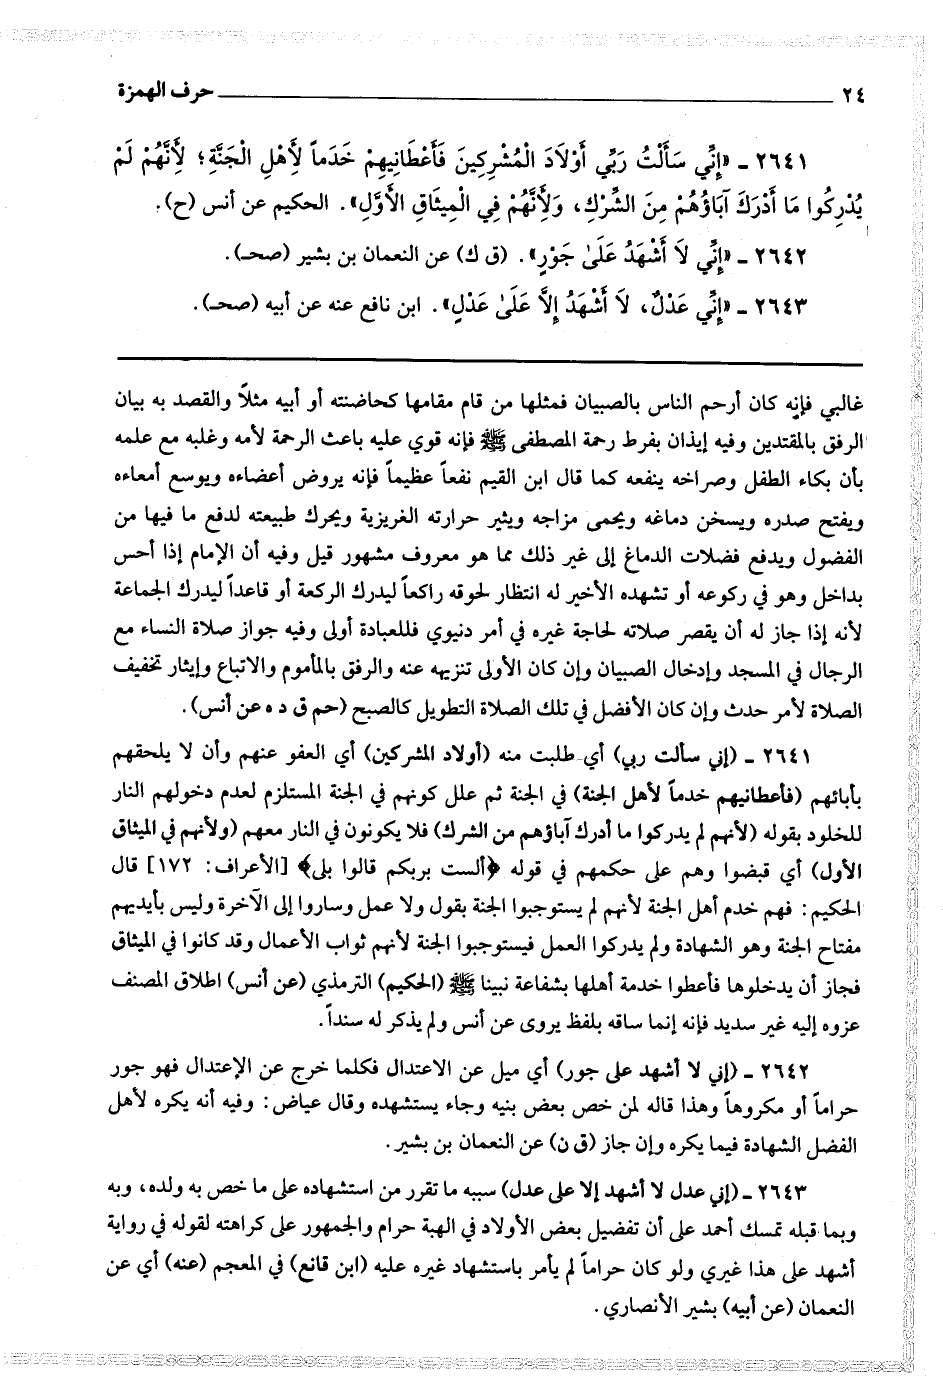 ٢٤ ـــــ حرف الهمزة
٢٦٤١ ـ «إِنِّي سَأَلْتُ رَبِّي أَوْلَادَ الْمُشْرِكِينَ فَأَعْطَانِيهِمْ خَدَماً لِأَهْلِ الْجَنَّةِ؛ لِأَنَّهُمْ لَمْ
يُدْرِكُوا مَا أَدْرَكَ آبَاؤُهُمْ مِنَ الشِّرْكِ، وَلِأَنَّهُمْ فِي الْمِيثَاقِ الْأَوَّلِ». الحكيم عن أنس (ح).
٢٦٤٢ ـ «إِنِّي لَا أَشْهَدُ عَلَىٰ جَوْرٍ». (ق ك) عن النعمان بن بشير (صحـ).
٢٦٤٣ ـ «إِنِّي عَدْلٌ، لَا أَشْهَدُ إِلَّا عَلَىٰ عَدْلٍ». ابن نافع عنه عن أبيه (صحـ).
غالبي فإنه كان أرحم الناس بالصبيان فمثلها من قام مقامها كحاضنته أو أبيه مثلاً والقصد به بيان
الرفق بالمقتدين وفيه إيذان بفرط رحمة المصطفى ﷺ فإنه قوي عليه باعث الرحمة لأمه وغلبه مع علمه
بأن بكاء الطفل وصراخه ينفعه كما قال ابن القيم نفعاً عظيماً فإنه يروض أعضاءه ويوسع أمعاءه
ويفتح صدره ويسخن دماغه ويحمى مزاجه ويثير حرارته الغريزية ويحرك طبيعته لدفع ما فيها من
الفضول ويدفع فضلات الدماغ إلى غير ذلك مما هو معروف مشهور قيل وفيه أن الإمام إذا أحس
بداخل وهو في ركوعه أو تشهده الأخير له انتظار لحوقه راكعاً ليدرك الركعة أو قاعداً ليدرك الجماعة
لأنه إذا جاز له أن يقصر صلاته لحاجة غيره في أمر دنيوي فللعبادة أولى وفيه جواز صلاة النساء مع
الرجال في المسجد وإدخال الصبيان وإن كان الأولى تنزيهه عنه والرفق بالمأموم والاتباع وإيثار تخفيف
الصلاة لأمر حدث وإن كان الأفضل في تلك الصلاة التطويل كالصبح (حم ق د ه عن أنس).
٢٦٤١ ـ (إني سألت ربي) أي طلبت منه (أولاد المشركين) أي العفو عنهم وأن لا يلحقهم
بأبائهم (فأعطانيهم خدماً لأهل الجنة) في الجنة ثم علل كونهم في الجنة المستلزم لعدم دخولهم النار
للخلود بقوله (لأنهم لم يدركوا ما أدرك آباؤهم من الشرك) فلا يكونون في النار معهم (ولأنهم في الميثاق
الأول) أي قبضوا وهم على حكمهم في قوله ﴿ألست بربكم قالوا بلى﴾ [الأعراف: ١٧٢] قال
الحكيم: فهم خدم أهل الجنة لأنهم لم يستوجبوا الجنة بقول ولا عمل وساروا إلى الآخرة وليس بأيديهم
مفتاح الجنة وهو الشهادة ولم يدركوا العمل فيستوجبوا الجنة لأنهم ثواب الأعمال وقد كانوا في الميثاق
فجاز أن يدخلوها فأعطوا خدمة أهلها بشفاعة نبينا ﷺ (الحكيم) الترمذي (عن أنس) اطلاق المصنف
عزوه إليه غير سديد فإنه إنما ساقه بلفظ يروى عن أنس ولم يذكر له سنداً.
٢٦٤٢ ـ (إني لا أشهد على جور) أي ميل عن الاعتدال فكلما خرج عن الإعتدال فهو جور
حراماً أو مكروهاً وهذا قاله لمن خص بعض بنيه وجاء يستشهده وقال عياض: وفيه أنه يكره لأهل
الفضل الشهادة فيما يكره وإن جاز (ق ن) عن النعمان بن بشير.
٢٦٤٣ ـ (إني عدل لا أشهد إلا على عدل) سببه ما تقرر من استشهاده على ما خص به ولده، وبه
وبما قبله تمسك أحمد على أن تفضيل بعض الأولاد في الهبة حرام والجمهور على كراهته لقوله في رواية
أشهد على هذا غيري ولو كان حراماً لم يأمر باستشهاد غيره عليه (ابن قانع) في المعجم (عنه) أي عن
النعمان (عن أبيه) بشير الأنصاري.